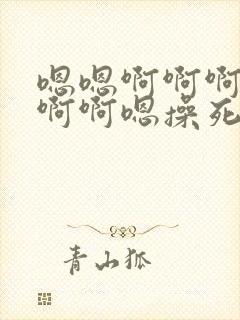 嗯嗯啊啊啊
啊啊嗯操死
青山狐